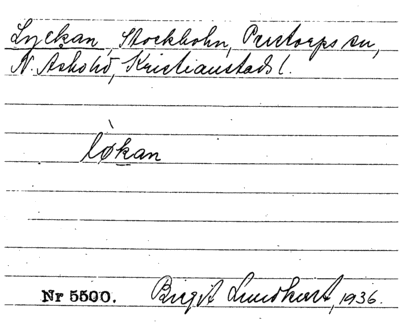 Lyckan, Stockholm, Perstorps sn,
N. Åsbo hd, Kristianstads l.
lø̀kan
Nr 5500. Birgit Lundkvist, 1936.